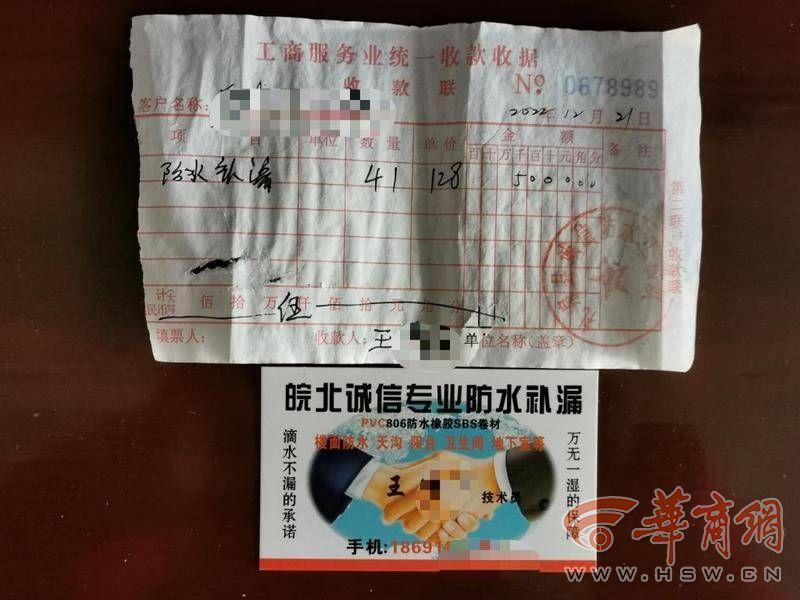 工商服务业统一收款收据
收款联 №. 0678989
客户名称:
2022年12月21日
项目 单位 数量 单价 金额 备注
百十万千百十元角分
防水补漏 41 128 500000
第二联:收款联
计(大写) 人民币 佰拾万伍仟佰拾元角分
填票人: 收款人: 王 单位名称(盖章)
皖北诚信专业防水补漏
PVC806防水橡胶SBS卷材
楼面防水 天沟 阳台 卫生间 地下室等
滴水不漏的承诺
万无一湿的保障
王 技术员
手机:18691
华商网
WWW.HSW.CN